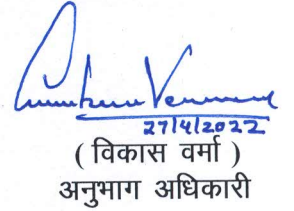 27/4/2022
( विकास वर्मा )
अनुभाग अधिकारी